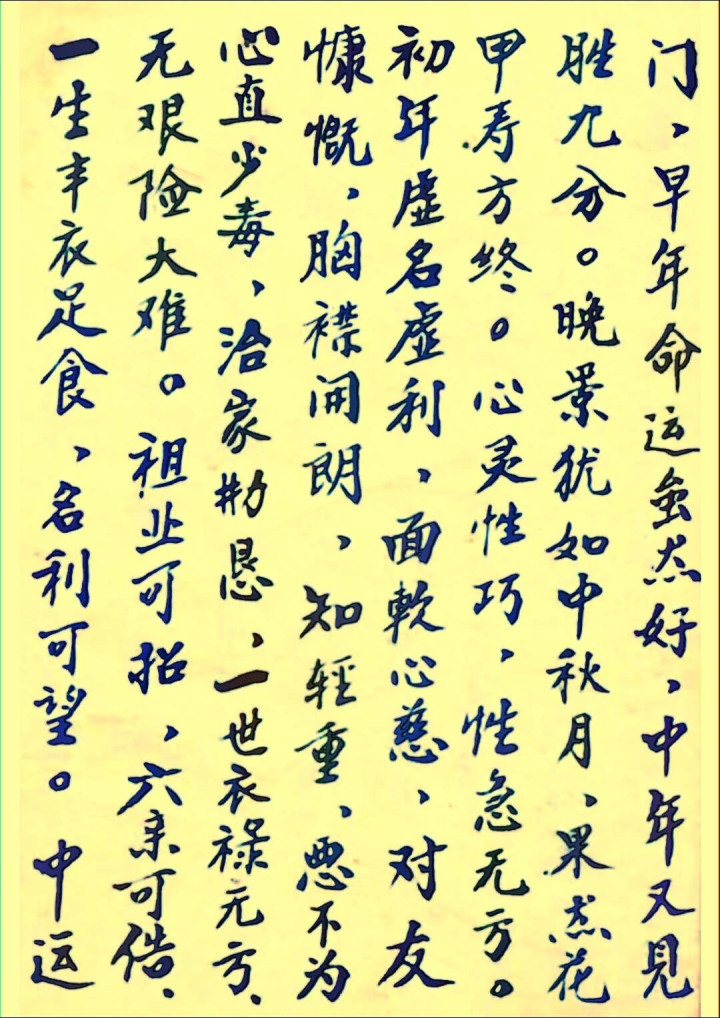 门、早年命运虽然好，中年又见
胜九分。晚景犹如中秋月，果然花
甲寿方终。心灵性巧，性急无亏。
初年虚名虚利，面軟心慈，对友
慷慨，胸襟開朗，知輕重，恶不为
心直少毒，治家勤恳，一世衣祿无亏、
无艰险大难。祖业可招，六亲可借、
一生丰衣足食，名利可望。中运